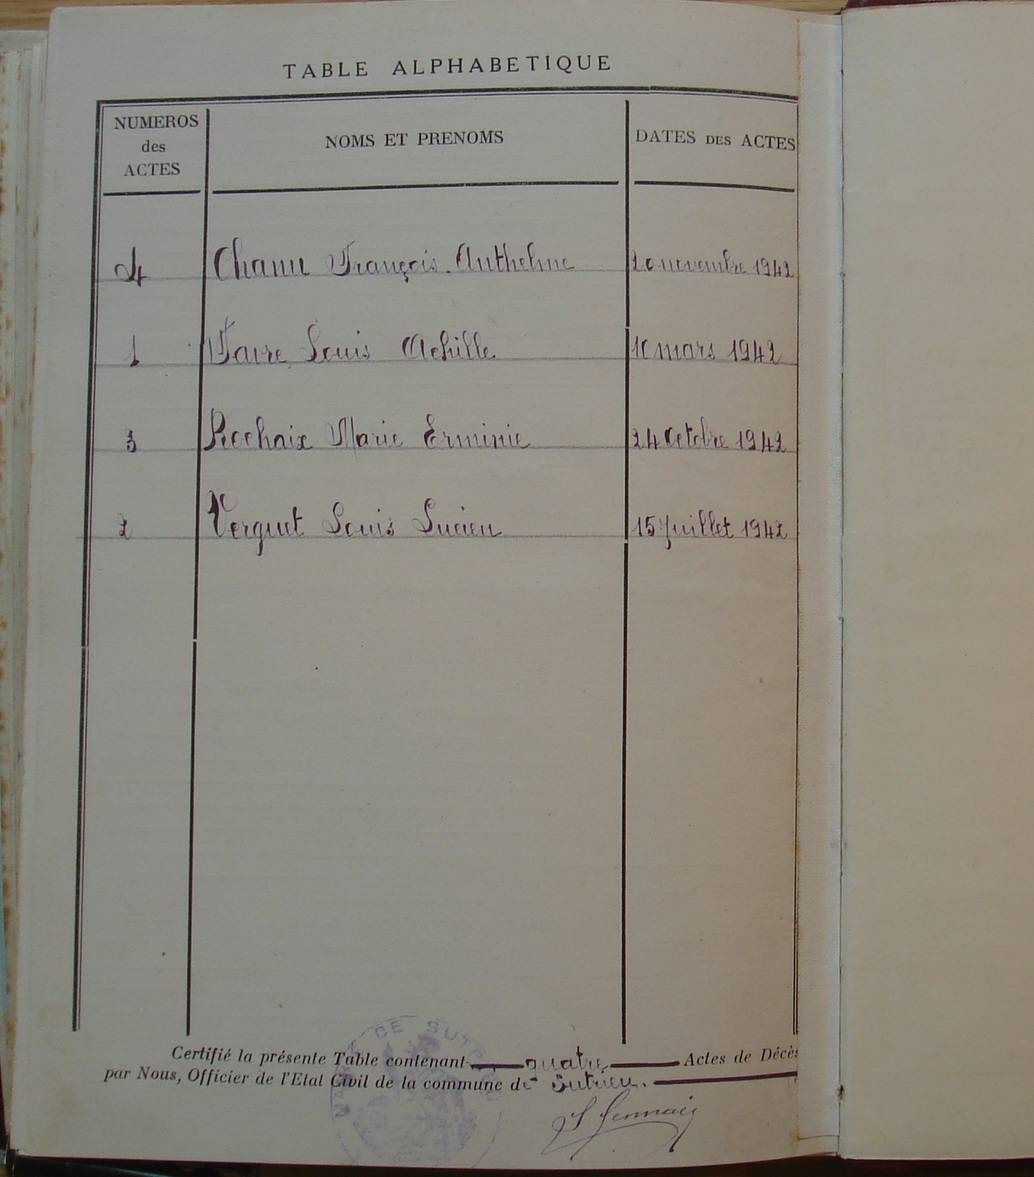 TABLE ALPHABETIQUE
NUMEROS des ACTES NOMS ET PRENOMS DATES DES ACTES
4 Chanu François Anthelme 20 novembre 1942
1 Favre Louis Achille 10 mars 1942
3 Rochaix Marie Erminie 24 Octobre 1942
2 Verguet Louis Lucien 15 Juillet 1942
Certifié la présente Table contenant quatre Actes de Décès
par Nous, Officier de l'Etat Civil de la commune de Sutrieu.